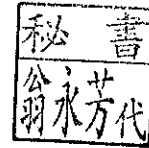 秘書
翁永芳代